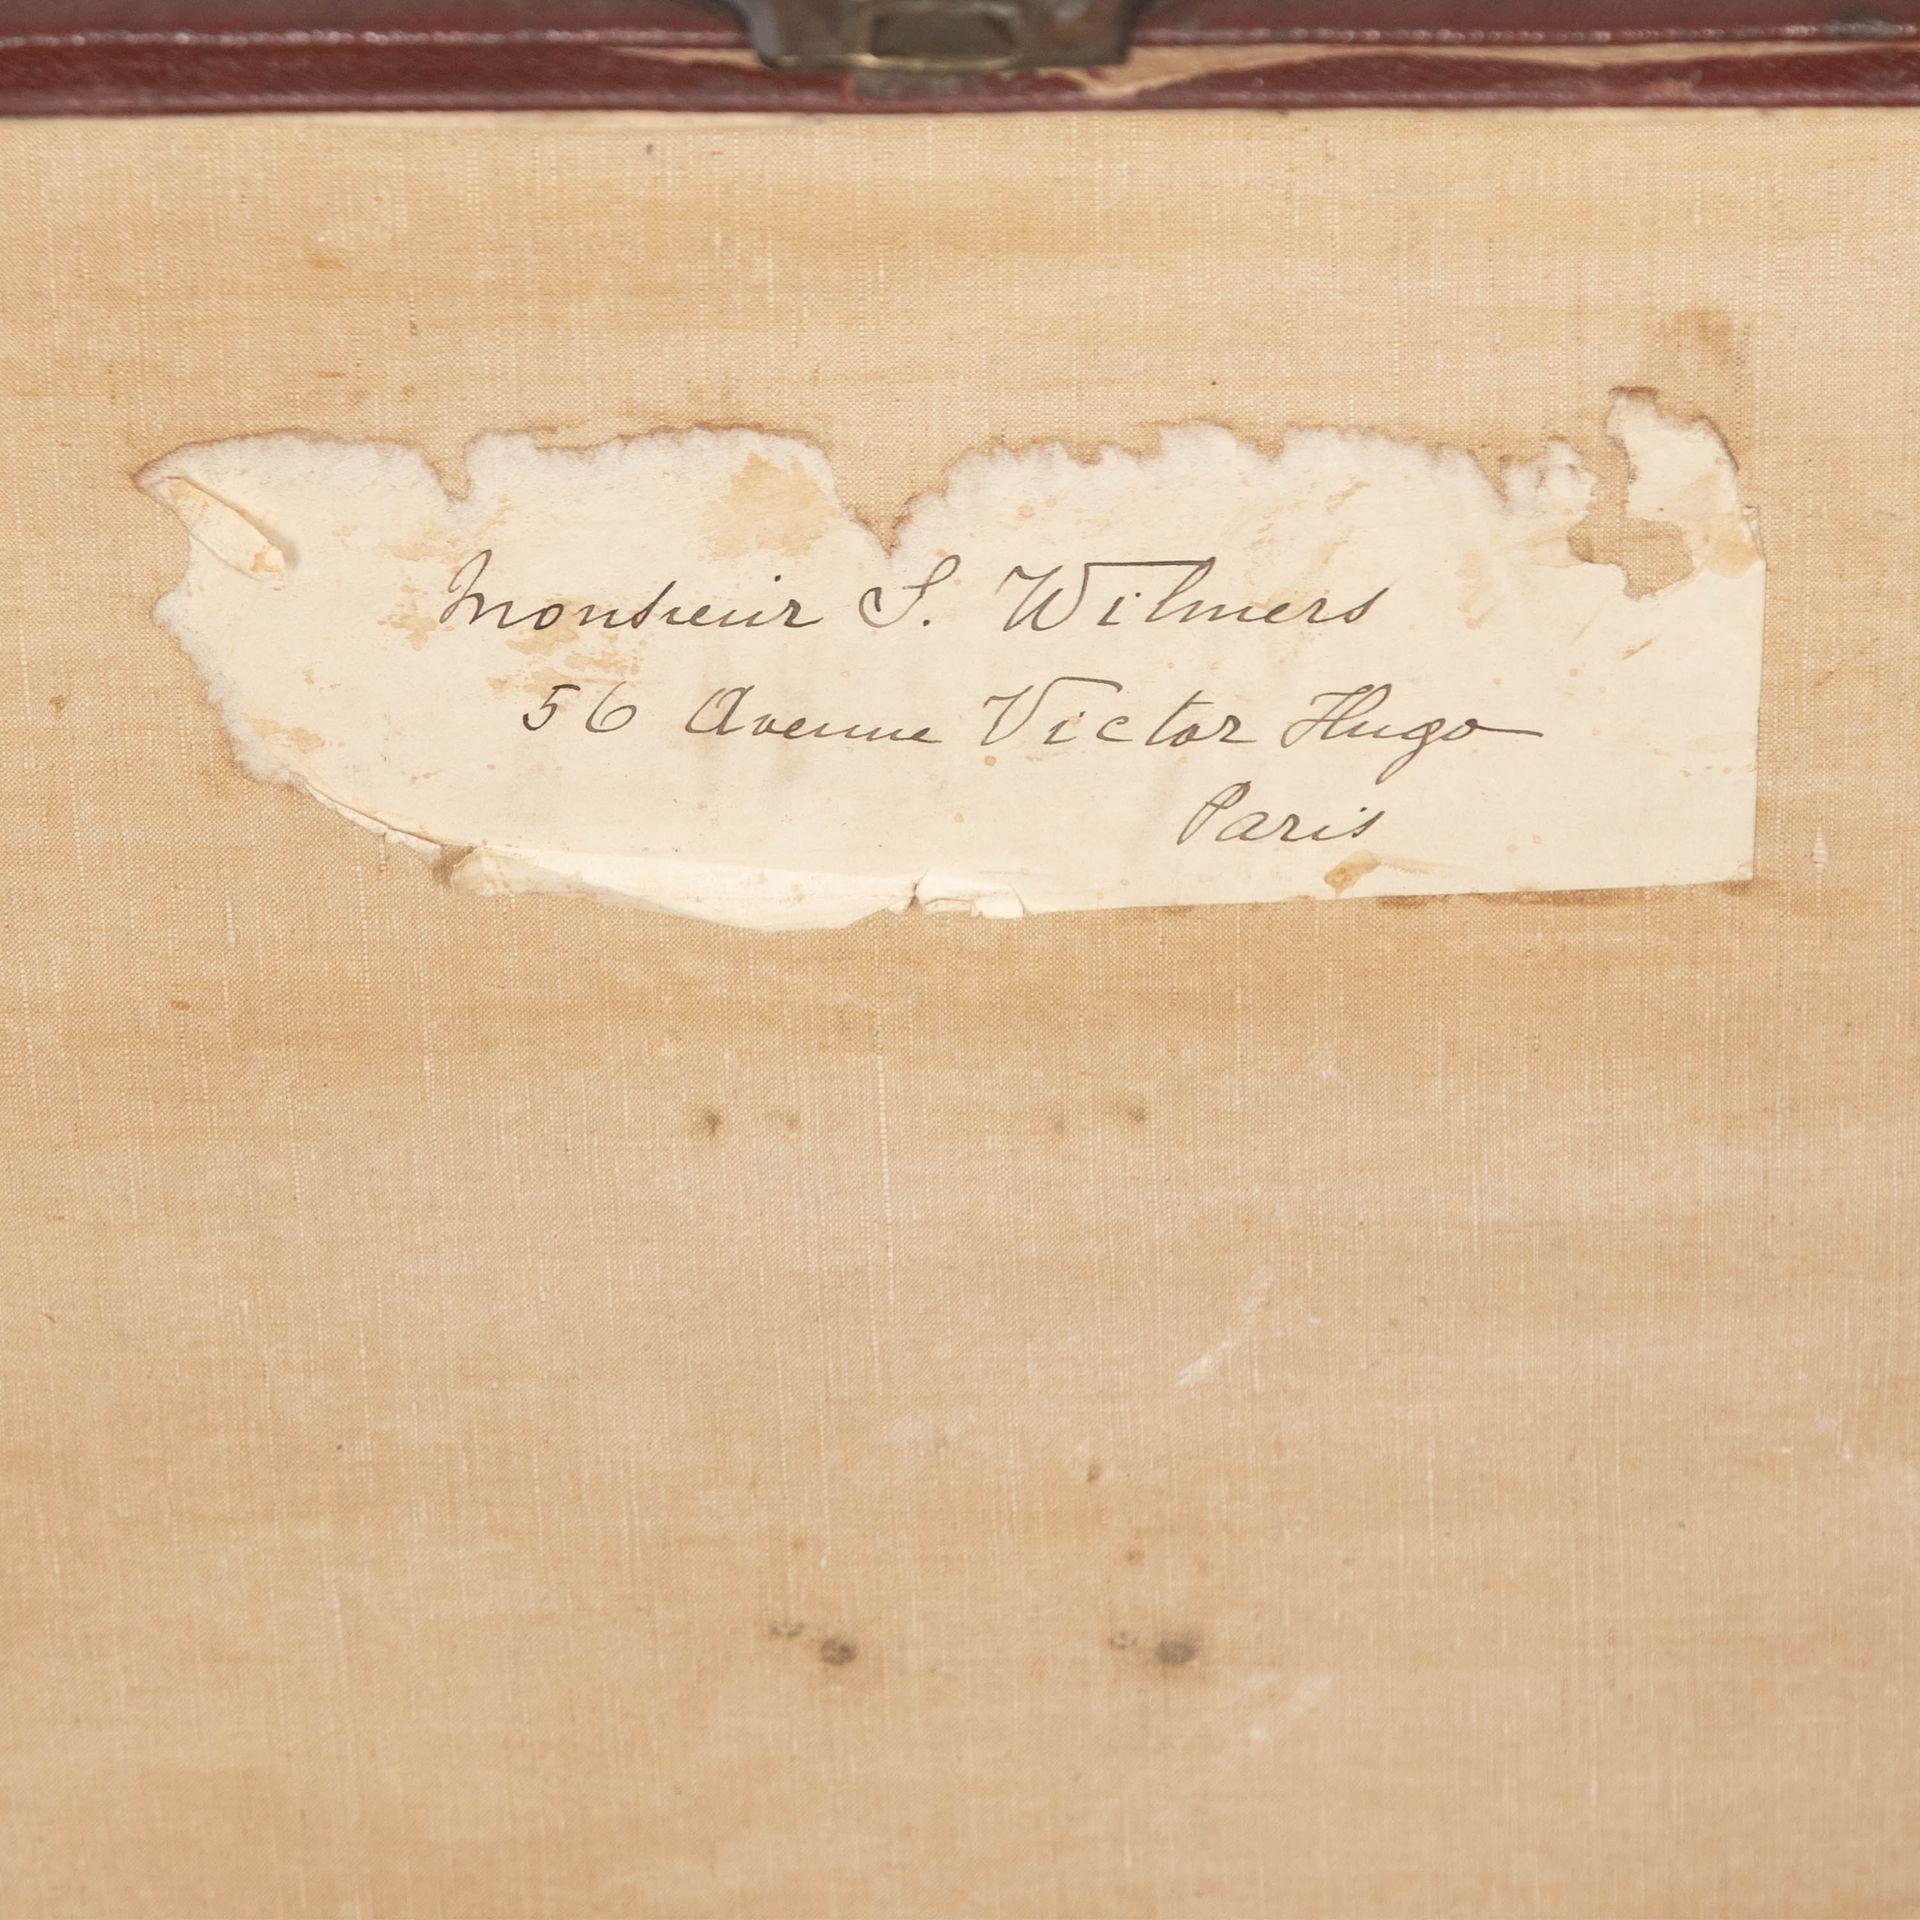 Monsieur S. Wilmers
56 Avenue Victor Hugo
Paris